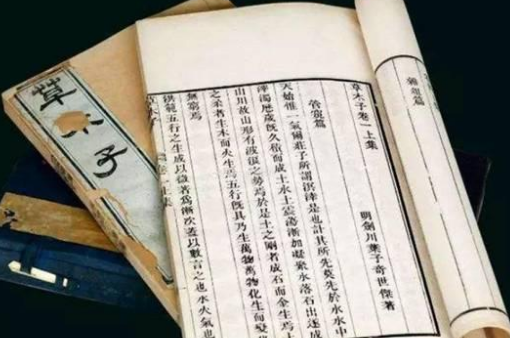 草木子
雜俎篇
草木子卷一上集
明劍川葉子奇世傑著
管窺篇
天始惟一氣爾莊子所謂溟涬是也計其所先莫先於水水中
滓濁歷歲既久積而成土水土震蕩漸加凝聚水落石出遂成
山川故山形有波浪之勢焉於是土之剛者成石而金生焉
之柔者生木而火生焉五行既具乃生萬物萬物化生而變
無窮焉
洪範五行之生成以微著為漸次蓋以數言之也水火氣也
草木子